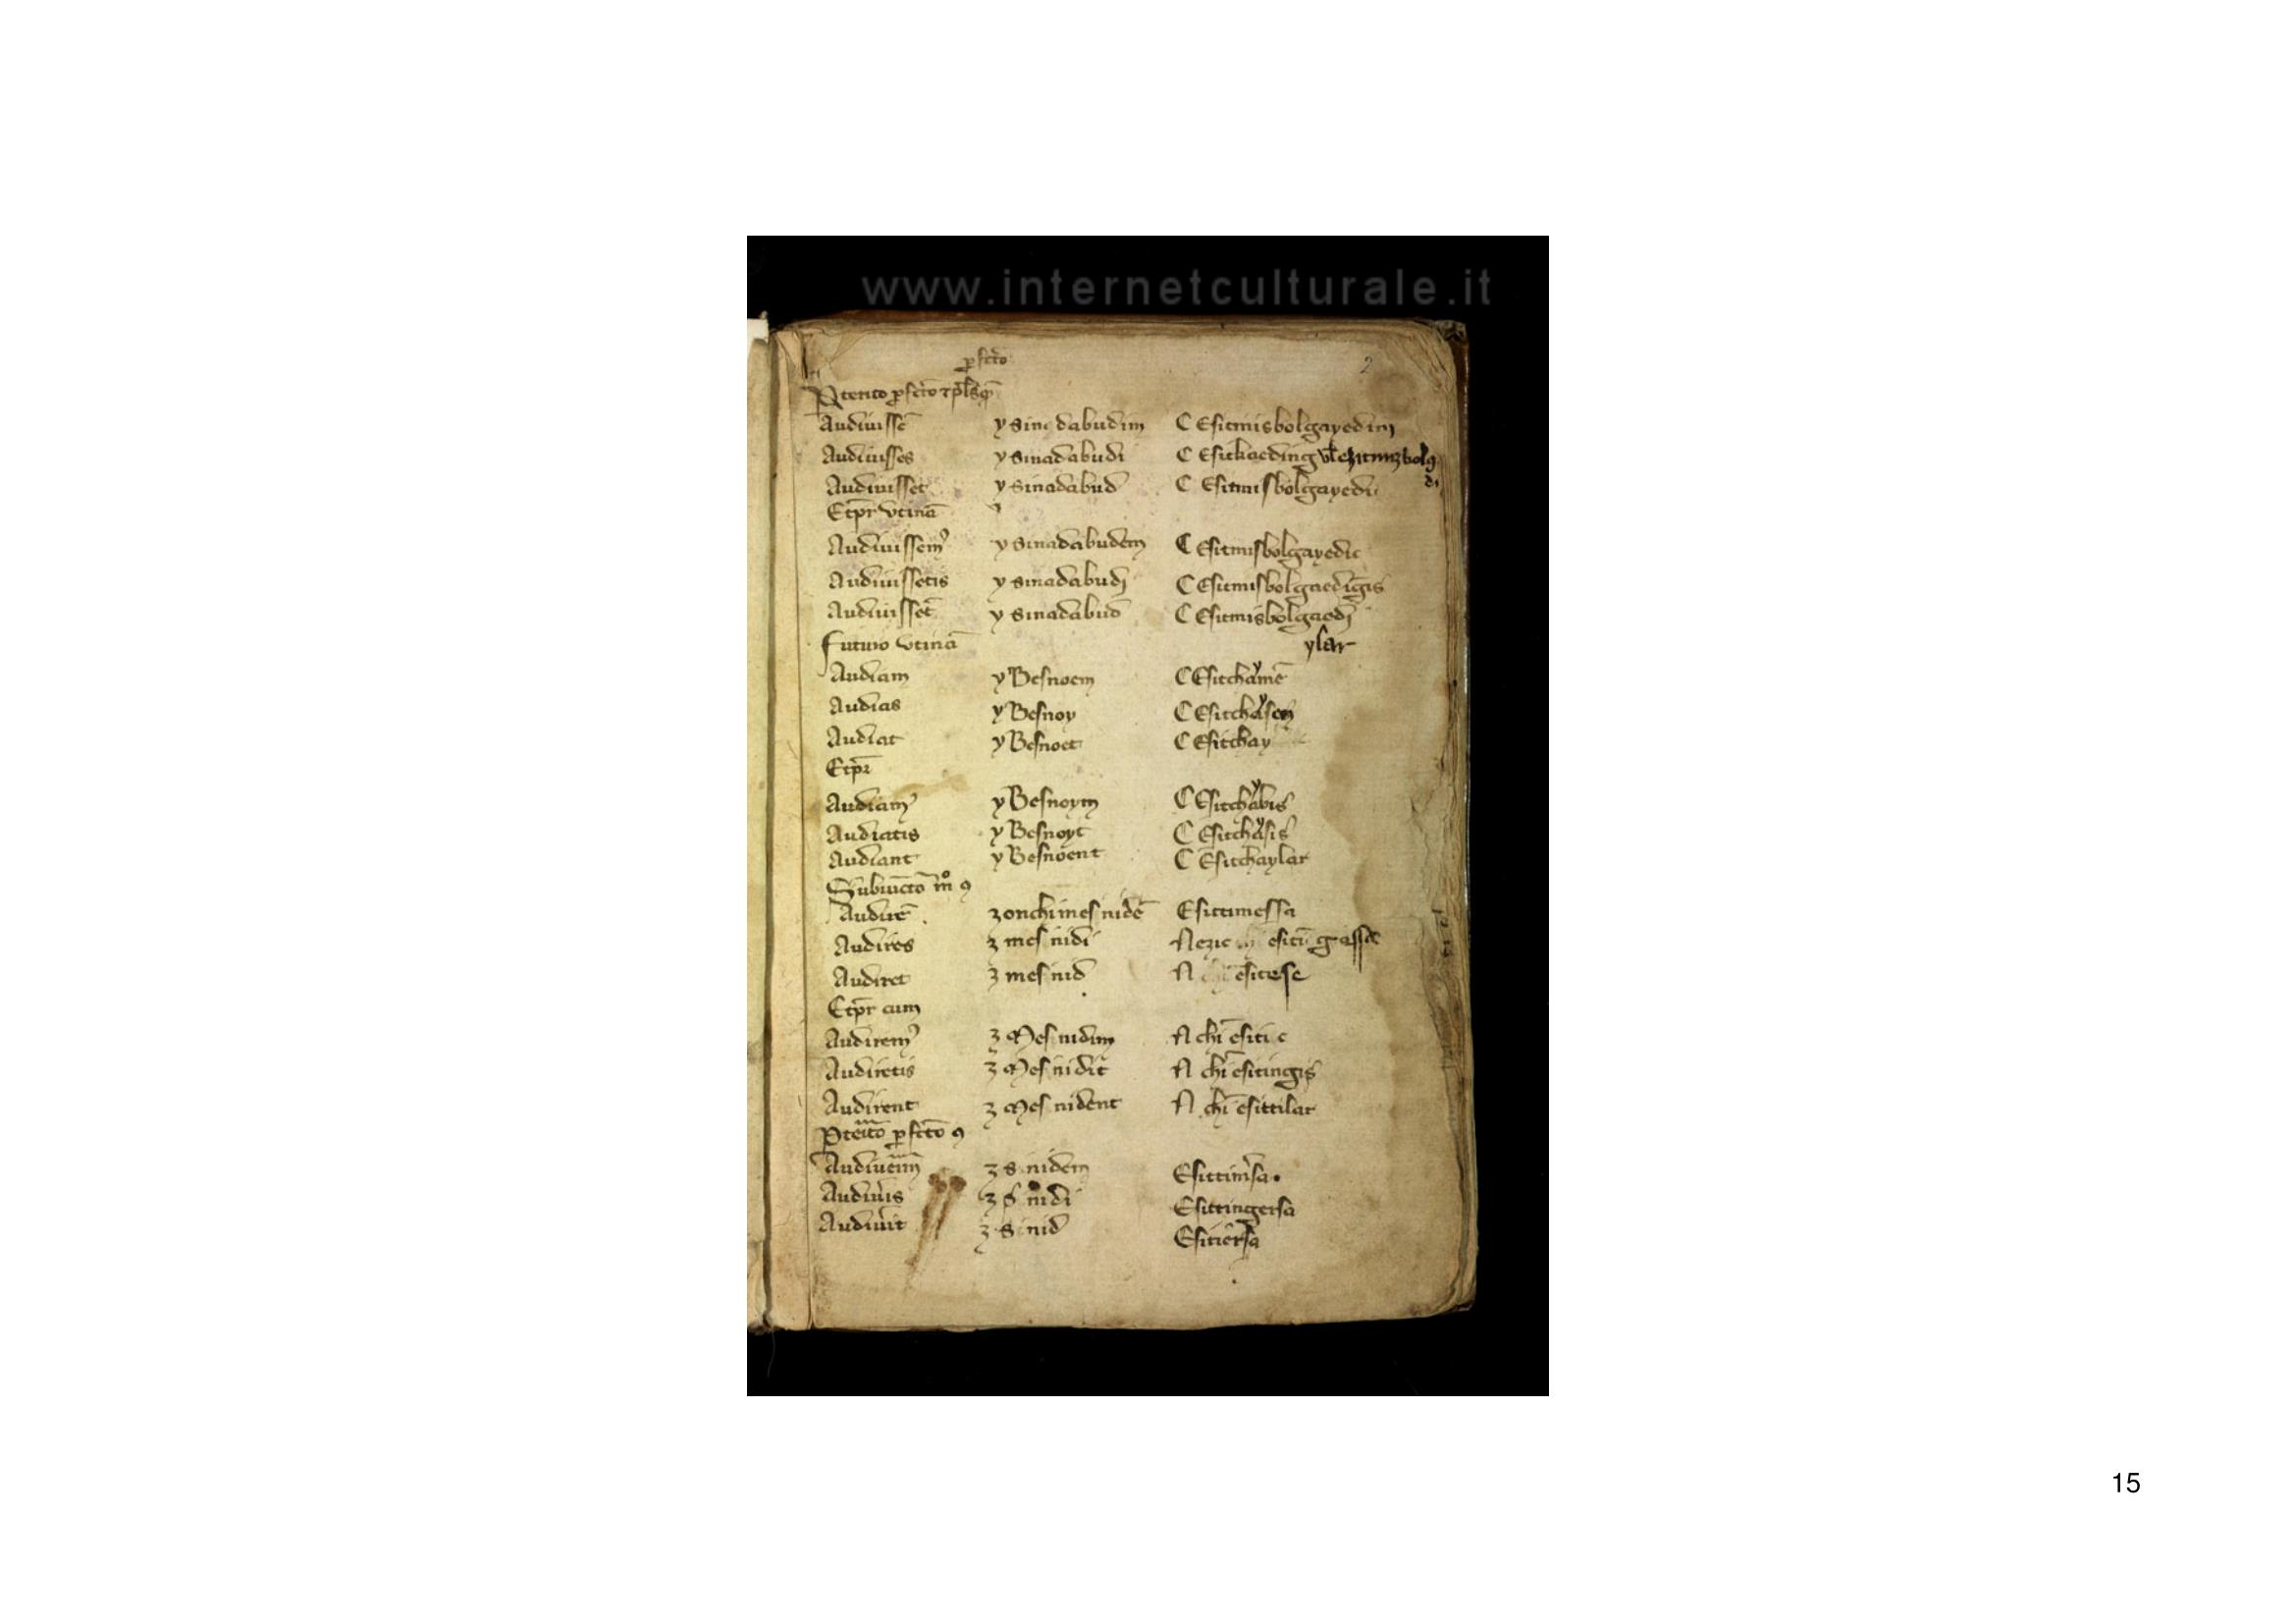 www.internetculturale.it
ꝑfcto
2
Ptento ꝑfcto ⁊ pl̄sqꝫ
Audiuissē y sinadabudim C Esitmisbolgayedim
Audiuisses y sinadabudi C Esitkaeding vl̄ ezitmizbolg
di
Audiuisset y sinadabud C Esitmisbolgayedi
Etpr vtinā
Audiuissemꝰ y sinadabudem C Esitmisbolgayedic
Audiuissetis y sinadabudj C Esitmisbolgaedīgis
Audiuissēt y sinadabud C Esitmisbolgaedj
ylar
Futuro vtinā
Audiam y Besnoem C Esitchaymē
Audias y Besnoy C Esitchaysen
Audiat y Besnoet C Esitchay
Etpr
Audiamꝰ y Besnoym C Esitchaybis
Audiatis y Besnoyt C Esitchaysis
Audiant y Besnoent C Esitchaylar
Subiūcto mº ꝯ
Audirē zonchimes nidē Esittimessa
Audires z mes nidi Nezic esitū gassa
Audiret z mes nid N esitese
Etpr cum
Audiremꝰ z Mes nidim N chi esiti c
Audiretis z Mes nidit N chi esitingis
Audirent z Mes nident N chi esittilar
Pteito ꝑfcto ꝯ
Audiuerim z s nidem Esittimsa
Audiuis z s nidi Esittingersa
Audiuit z s nid Esitiersa
15